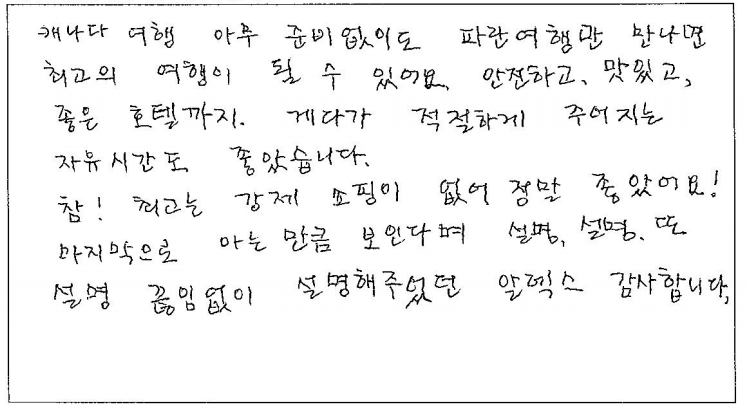 캐나다 여행 아무 준비없이도 파란여행만 만나면
최고의 여행이 될 수 있어요. 안전하고, 맛있고,
좋은 호텔까지. 게다가 적절하게 주어지는
자유시간도 좋았습니다.
참! 최고는 강제 쇼핑이 없어 정말 좋았어요!
마지막으로 아는 만큼 보인다며 설명, 설명, 또
설명 끊임없이 설명해주었던 알렉스 감사합니다,